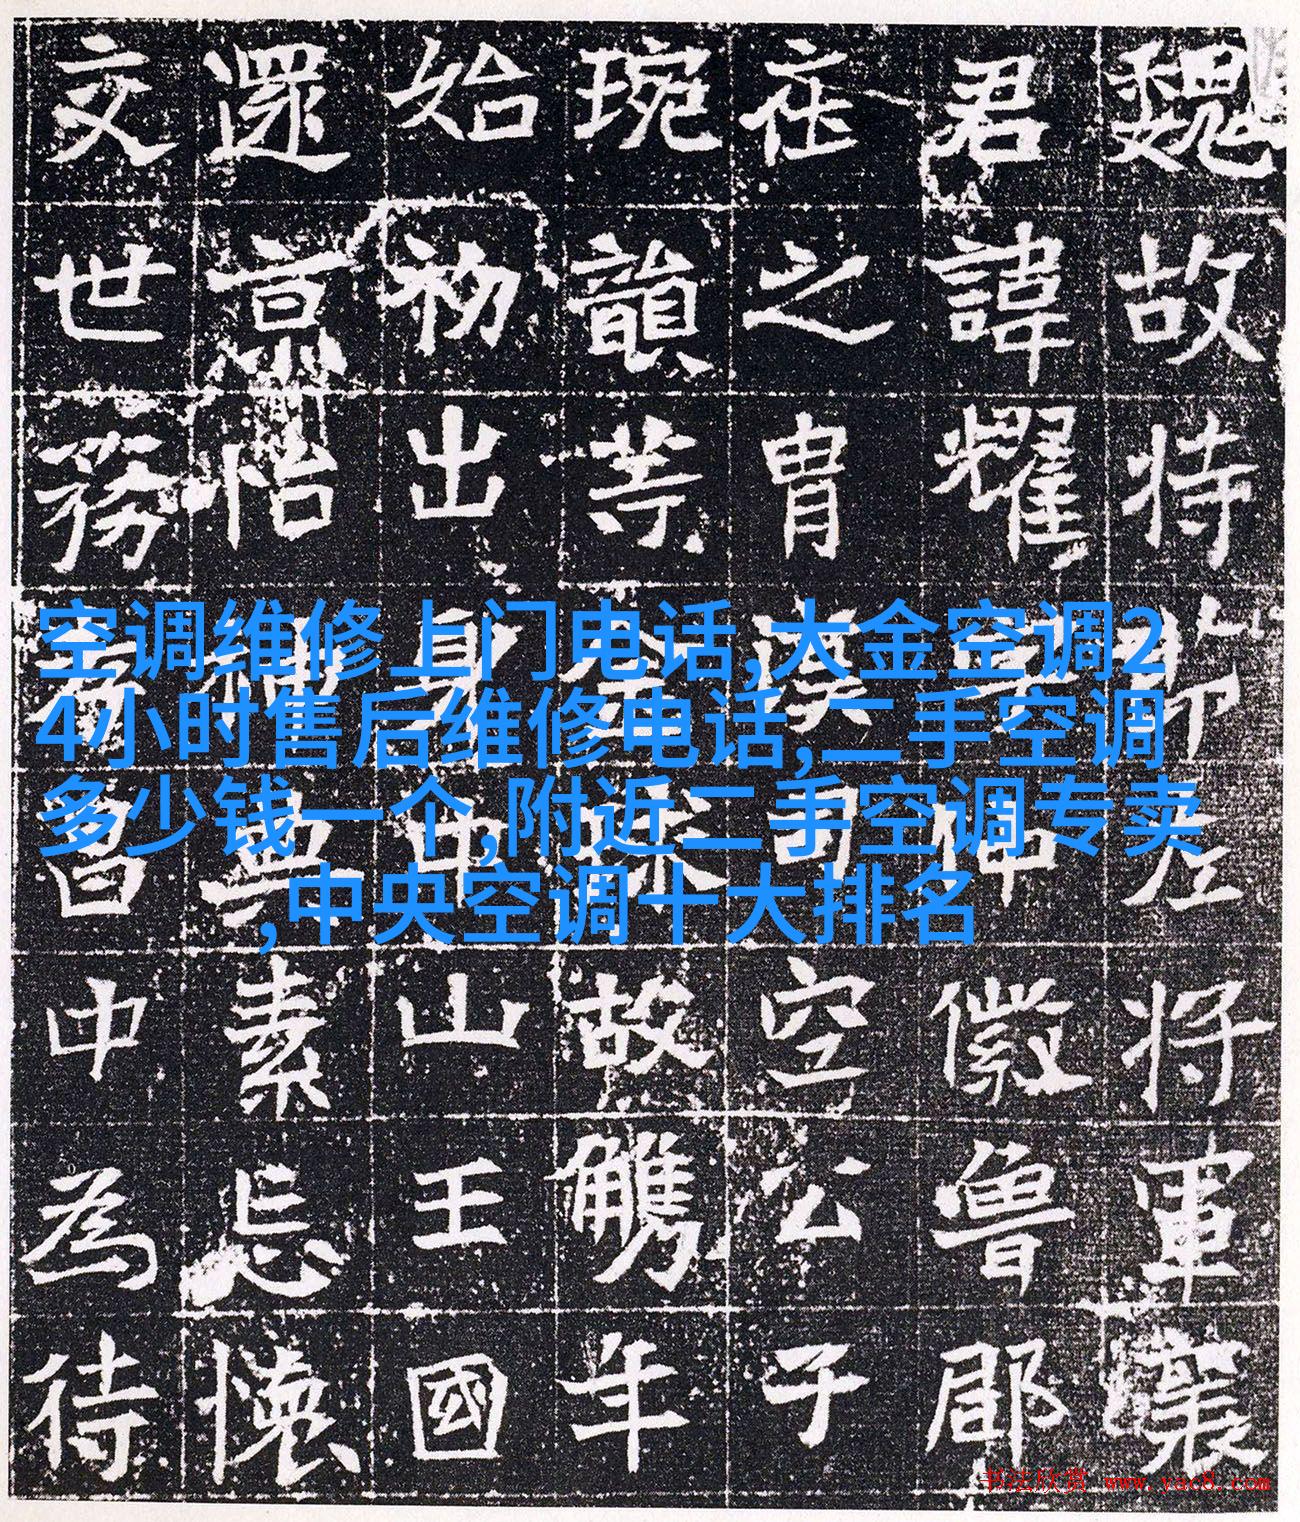 魏故持左將軍襄
君諱耀字仲徽魯郡
之胄漢司空公子
琬韻等孫故年
始初出身中山王國
還京怡神典素忘懷
交世務中為待
空调维修上门电话,大金空调2
4小时售后维修电话,二手空调
多少钱一个,附近二手空调专卖
,中央空调十大排名
书法欣赏 www.yac8.com